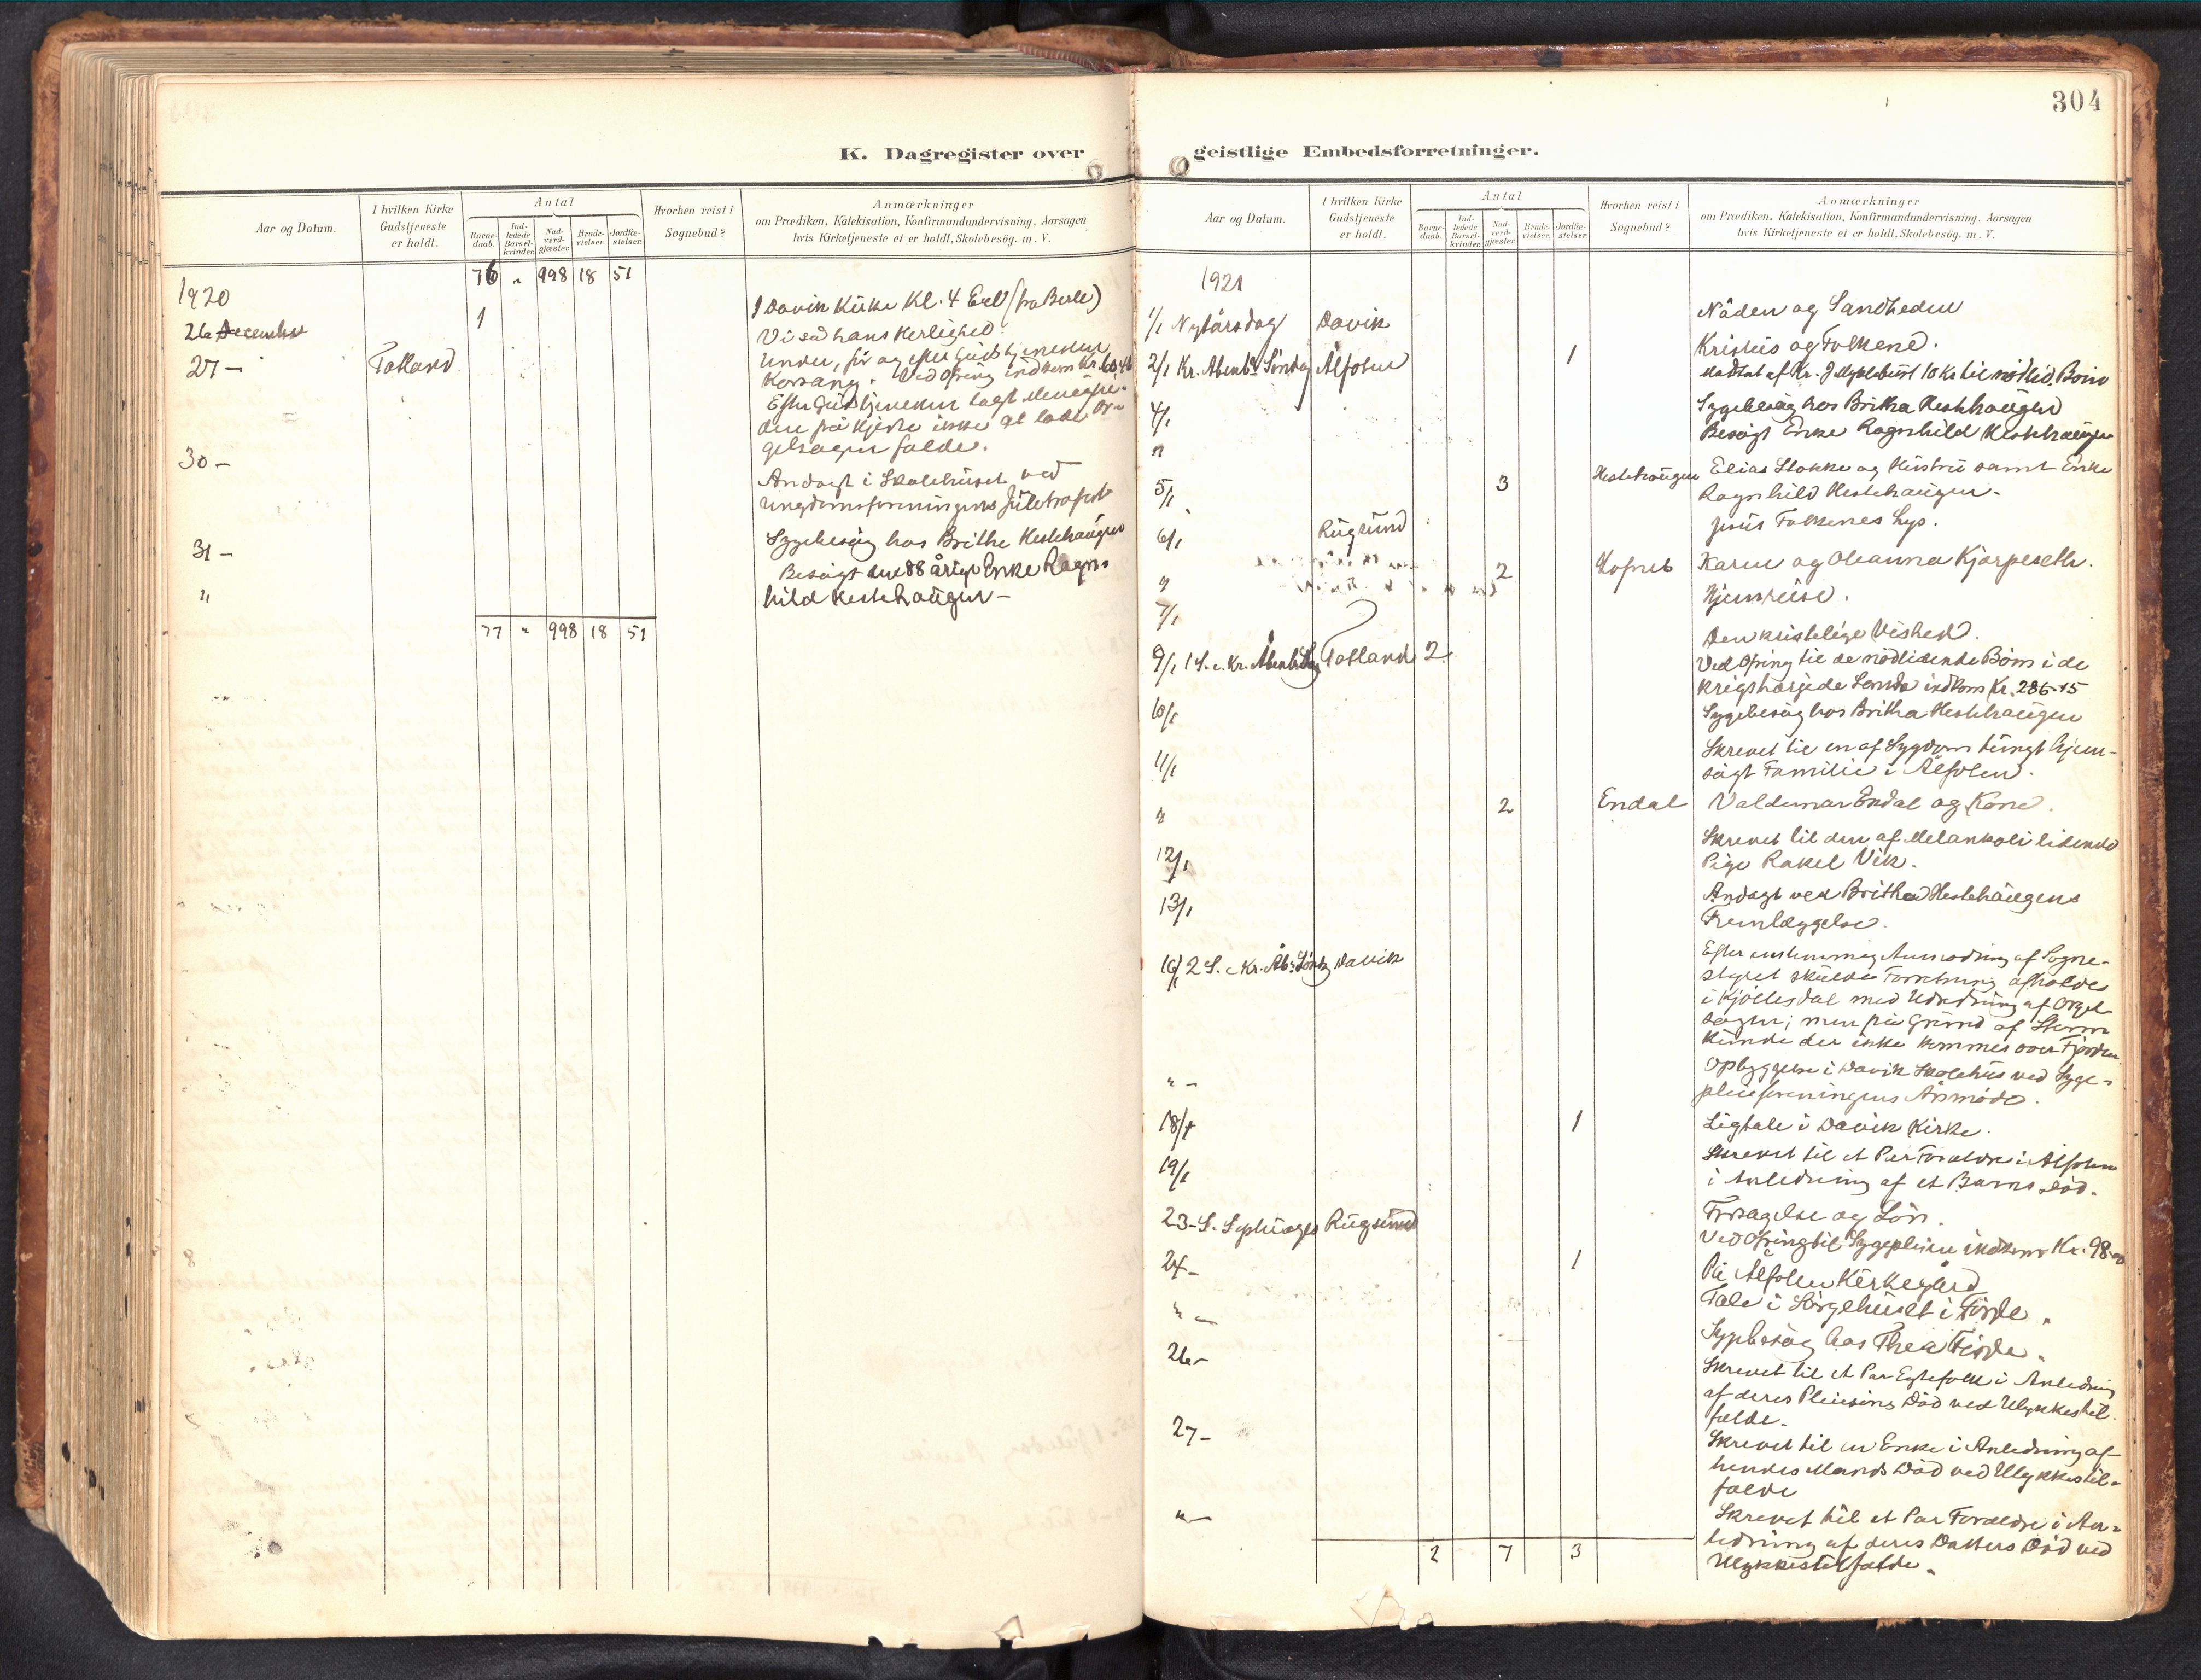 304
K. Dagregister over
Aar og Datum.
I hvilken Kirke
Gudstjeneste
er holdt.
Antal
Barne-
daab.
Ind-
ledede
Barsel-
kvinder.
Nad-
verd-
gjæster.
Brude-
vielser.
Jordfæ-
stelser.
Hvorhen reist i
Sognebud?
Anmærkninger
om Prædiken, Katekisation, Konfirmandundervisning, Aarsagen
hvis Kirketjeneste ei er holdt, Skolebesøg. m. V.
76 " 998 18 51
1920
I Davik Kirke Kl. 4 Em (fra Berle)
26 December 1 Vi så hans Herlighed.
27 – Totland Under, før og efter Gudstjenesten
Korsang. Ved Ofring indkom Kr. 60,46
Efter Gudstjenesten lagt Menighe-
den på Hjerte ikke at lade Or-
gelsagen falde.
30 –
Andagt i Skolehuset ved
Ungdomsforeningens Juletræfest
31 – Sygebesøg hos Brithe Hestehaugen
Besøgt den 88 årige Enke Ragn-
" hild Hestehaugen –
77 " 998 18 51
geistlige Embedsforretninger.
Aar og Datum.
I hvilken Kirke
Gudstjeneste
er holdt.
Antal
Barne-
daab.
Ind-
ledede
Barsel-
kvinder.
Nad-
verd-
gjæster.
Brude-
vielser.
Jordfæ-
stelser.
Hvorhen reist i
Sognebud?
Anmærkninger
om Prædiken, Katekisation, Konfirmandundervisning, Aarsagen
hvis Kirketjeneste ei er holdt, Skolebesøg. m. V.
1921
1/1 Nytårsdag Davik Nåden og Sandheden
2/1 Kr. Åbenb. Søndag Ålfoten 1 Kristus og Folkene.
Modtat af Kr. J Myklebust 10 Kr til nødlid. Børn
4/1 Sygebesøg hos Britha Hestehaugen
" Besøgt Enke Ragnhild Hestehaugen
5/1 3 Hestehaugen Elias Stokke og Hustru samt Enke
Ragnhild Hestehaugen –
6/1 Rugsund Jesus Folkenes Lys.
" 2 Lofnes Karen og Oleanna Kjørpeseth.
7/1 Hjemreise.
9/1 1 S. e. Kr. Åbenb. Totland 2 Den kristelige Vished.
Ved Ofring til de nødlidende Børn i de
krigshærjede Lande indkom Kr. 286-15
10/1 Sygebesøg hos Britha Hestehaugen
11/1 Skrevet til en af Sygdom tungt hjem-
søgt Familie i Ålfoten.
" 2 Endal Valdemar Endal og Kone.
12/1 Skrevet til den af Melankoli lidende
Pige Rakel Vik.
13/1 Andagt ved Britha Hestehaugens
Fremlæggelse.
16/1 2 S. e. Kr. Åb. Davik Efter enstemmig Anmodning af Sogne-
styret skulde Forretning afholdes
i Kjølesdal med Udredning af Orgel-
sagen; men på Grund af Storm
kunde der ikke kommes over Fjorden.
" – Opbyggelse i Davik Skolehus ved Syge-
pleieforeningens Årsmøde.
18/1 1 Ligtale i Davik Kirke.
19/1 Skrevet til et Par Forældre i Ålfoten
i Anledning af et Barns Død.
23 – S. Septuages Rugsund Forsagelse og Løn.
Ved Ofring til Sygepleien indkom Kr. 98
24 – 1 På Ålfoten Kirkegård
" – Tale i Sørgehuset i Førde.
Sygebesøg hos Thea Førde.
26 – Skrevet til et Par Egtefolk i Anledning
af deres Pleiesøns Død ved Ulykkestil-
fælde.
27 – Skrevet til en Enke i Anledning af
hendes Mands Død ved Ulykkestil-
fælde
" – Skrevet til et Par Forældre i An-
ledning af deres Datters Død ved
Ulykkestilfælde.
2 7 3